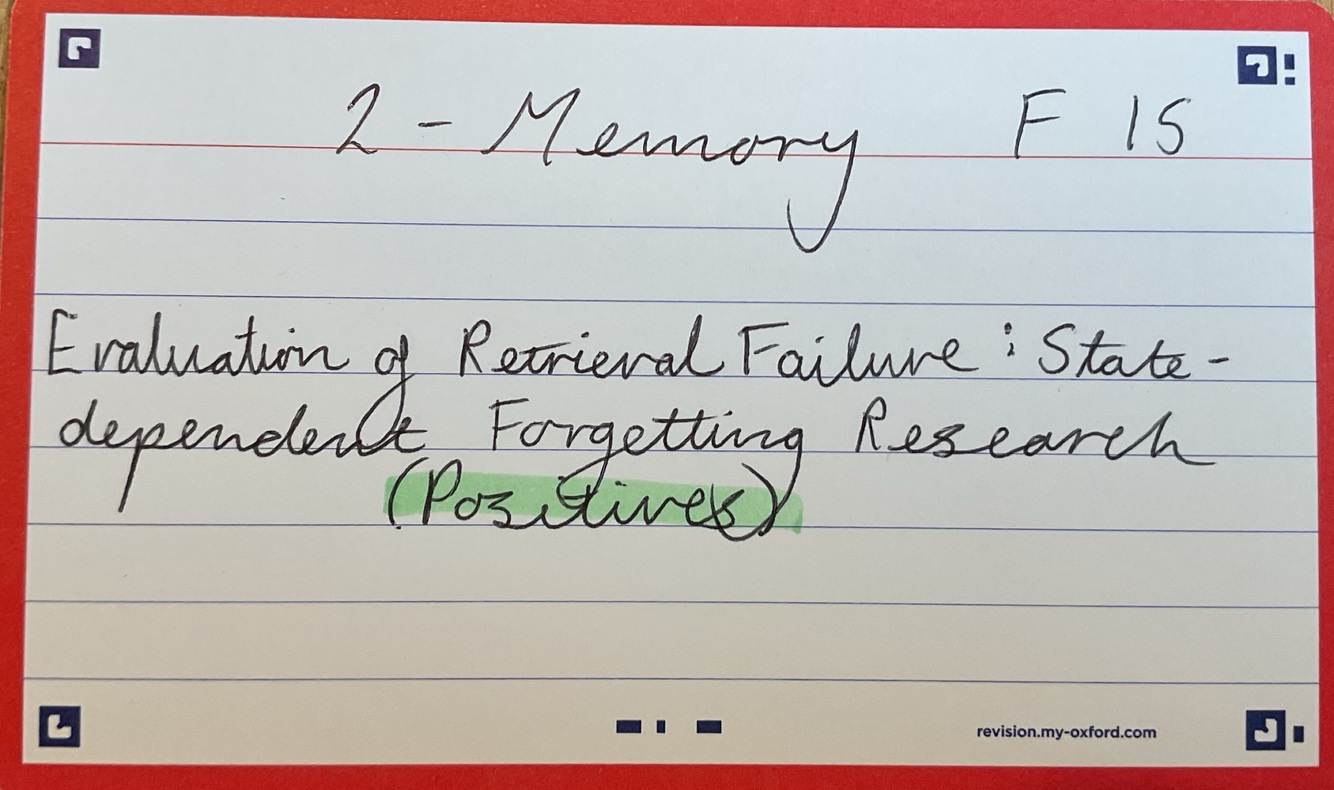 2 - Memory F 15
Evaluation of Retrieval Failure : State-
dependent Forgetting Research
(Positives)
revision.my-oxford.com